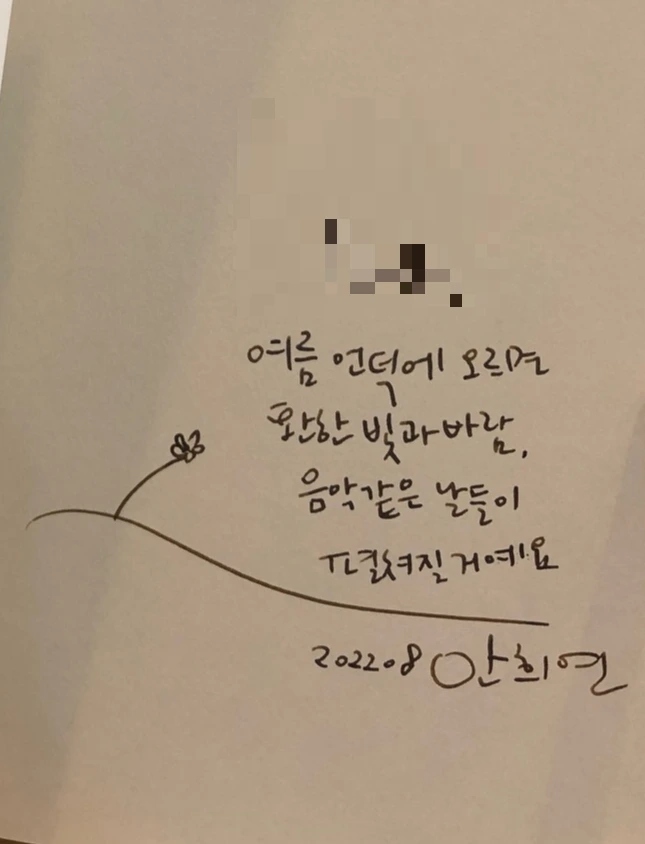 여름 언덕에 오르면
환한 빛과 바람,
음악같은 날들이
펼쳐질 거예요
2022.08 안희연